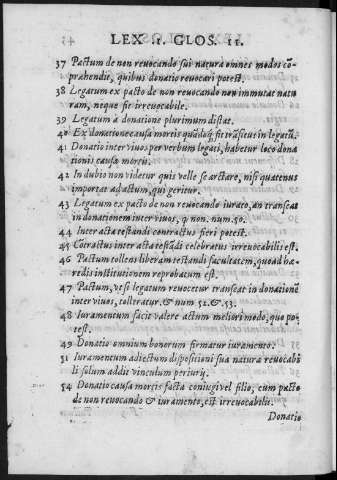 LEX 11. GLOS. 11.
37 Pactum de non reuocando sui natura omnes modos cō-
prehendit, quibus donatio reuocari potest.
38 Legatum ex pacto de non reuocando non immutat natu
ram, neque fit irreuocabile.
39 Legatum à donatione plurimum distat.
40 Ex donatione causa mortis quādoq; fit trāsitus in legatū.
41 Donatio inter viuos, per verbum legari, habetur loco dona
tionis causa mortis.
42 In dubio non videtur quis velle se arctare, nisi quatenus
importat ad actum, qui geritur.
43 Legatum ex pacto de non reuocando iurato, an transeat
in donationem inter viuos, q non. num. 50.
44 Inter acta testandi contractus fieri potest.
45 Cōtractus inter acta testādi celebratus irreuocabilis est.
46 Pactum tollens liberam testandi facultatem, quoad hæ-
redis institutionem reprobatum est.
47 Pactum, ve si legatum reuocetur transeat in donationē
inter viuos, tolleratur. & num 52. & . 53.
48 Iuramentum facit valere actum meliori modo, quo po-
test.
49 Donatio omnium bonorum firmatur iuramento.
51 Iuramentum adiectum dispositioni sua natura reuocabi
li solum addit vinculum periurij.
54 Donatio causa mortis facta coniugi vel filio, cum pacto
de non reuocando & iuramento, est irreuocabilis.
Donatio